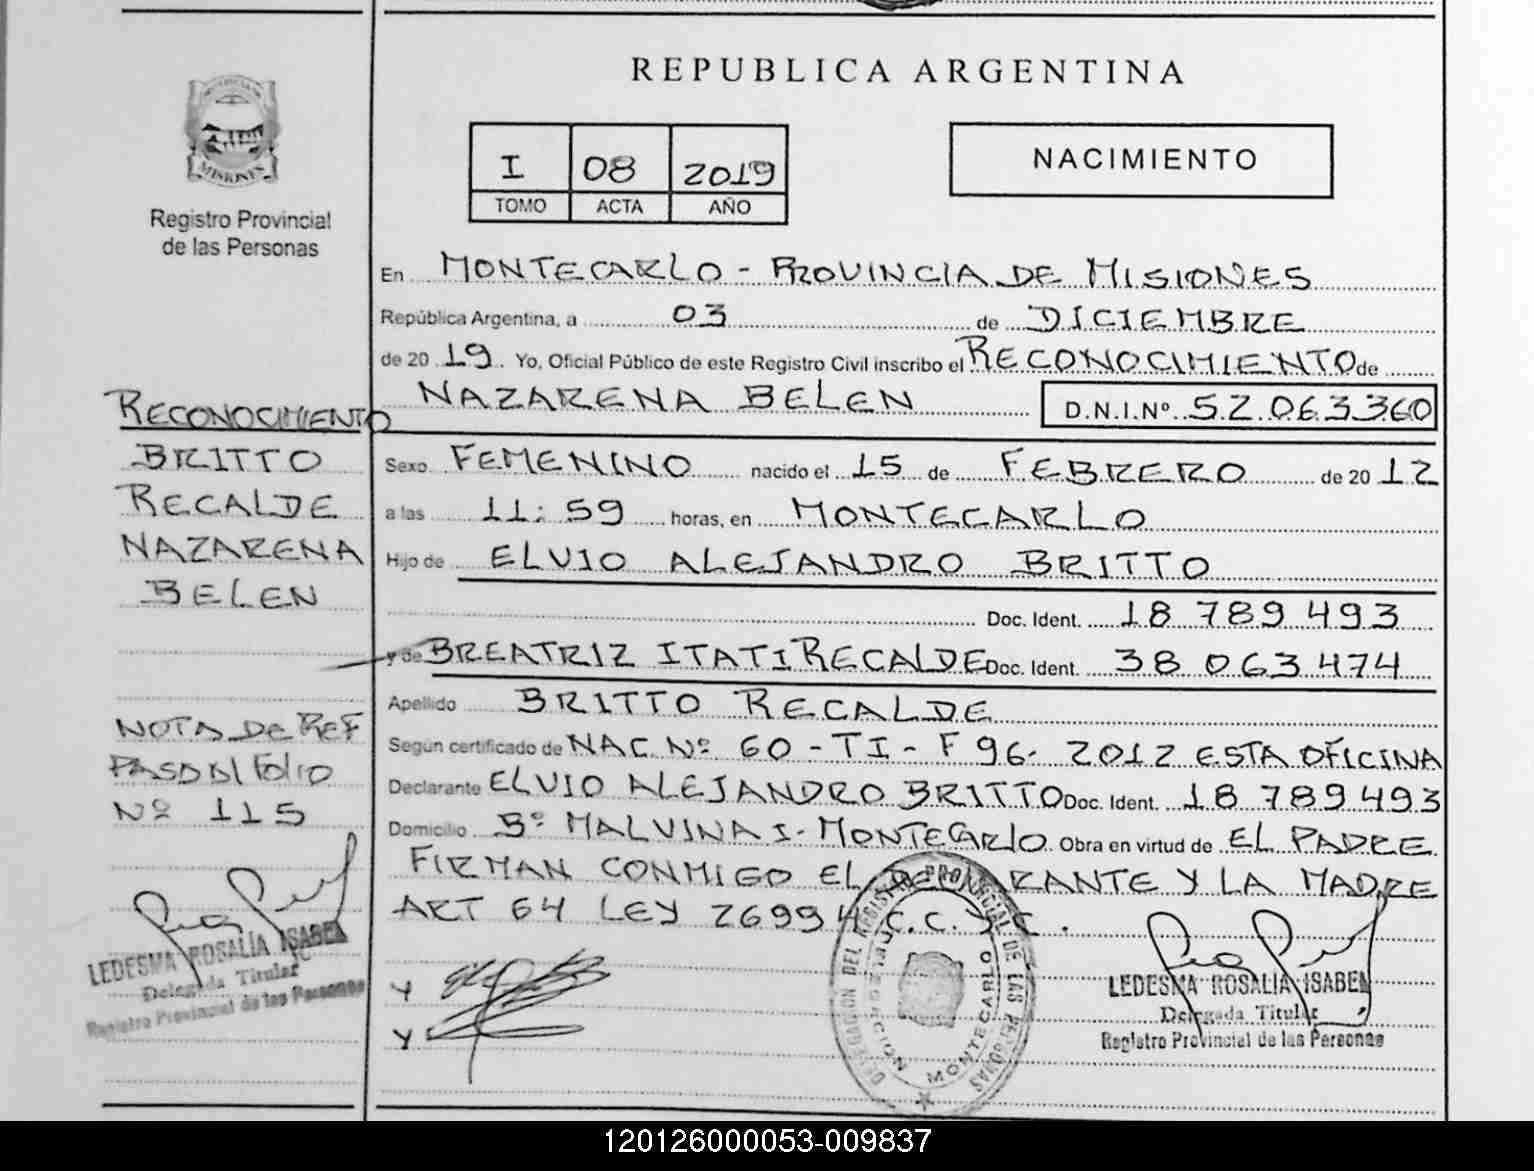 REPUBLICA ARGENTINA
MISIONES
Registro Provincial
de las Personas
I 08 2019
TOMO ACTA AÑO
NACIMIENTO
En MONTECARLO - PROVINCIA DE MISIONES
República Argentina, a 03 de DICIEMBRE
de 2019 Yo, Oficial Público de este Registro Civil inscribo el RECONOCIMIENTO de
NAZARENA BELEN D.N.I.Nº 52.063.360
Sexo FEMENINO nacido el 15 de FEBRERO de 2012
a las 11:59 horas, en MONTECARLO
Hijo de ELVIO ALEJANDRO BRITTO
Doc. Ident. 18 789 493
y de BREATRIZ ITATI RECALDE Doc. Ident. 38 063 474
Apellido BRITTO RECALDE
Según certificado de NAC Nº 60 - TI - F 96 - 2012 ESTA OFICINA
Declarante ELVIO ALEJANDRO BRITTO Doc. Ident. 18 789 493
Domicilio Bº MALVINA I - MONTECARLO Obra en virtud de EL PADRE
FIRMAN CONMIGO EL DECLARANTE Y LA MADRE
ART 64 LEY 26994 C.C. Y C.
Y
Y
DELEGACION DEL REGISTRO PROVINCIAL DE LAS PERSONAS
MONTECARLO
LEDESMA ROSALIA ISABEL
Delegada Titular
Registro Provincial de las Personas
RECONOCIMIENTO
BRITTO
RECALDE
NAZARENA
BELEN
NOTA DE REF
PASO AL FOLIO
Nº 115
LEDESMA ROSALIA ISABEL
Delegada Titular
Registro Provincial de las Personas
120126000053-009837